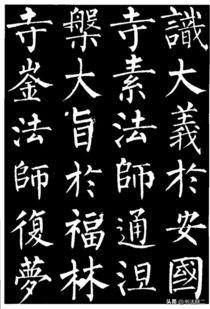 識大義於安國
寺素法師通涅
槃大旨於福林
寺崟法師復夢
头条 @书法顾二